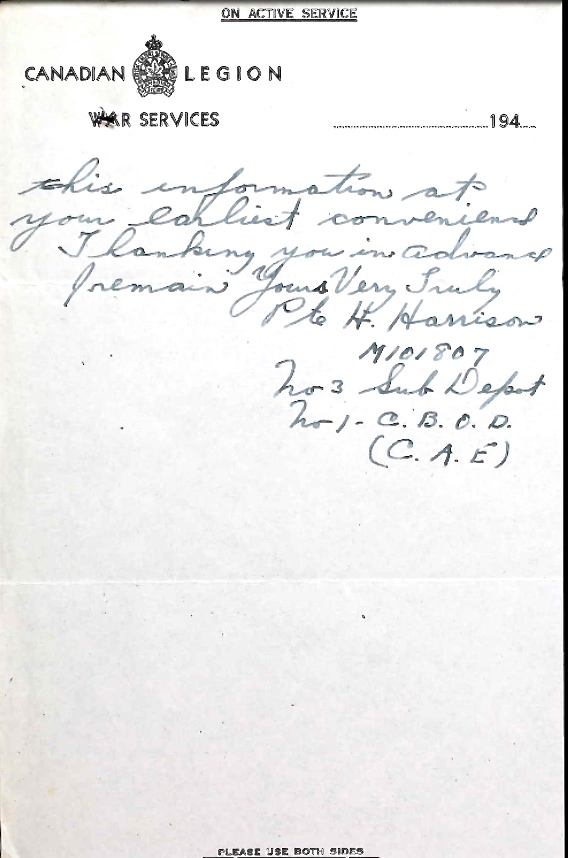 ON ACTIVE SERVICE
CANADIAN LEGION
WAR SERVICES
194
this information at
your earliest convenience
Thanking you in advance
I remain Yours Very Truly
Pte H. Harrison
M101807
No 3 Sub Depot
No 1 - C. B. O. D.
(C. A. E)
PLEASE USE BOTH SIDES